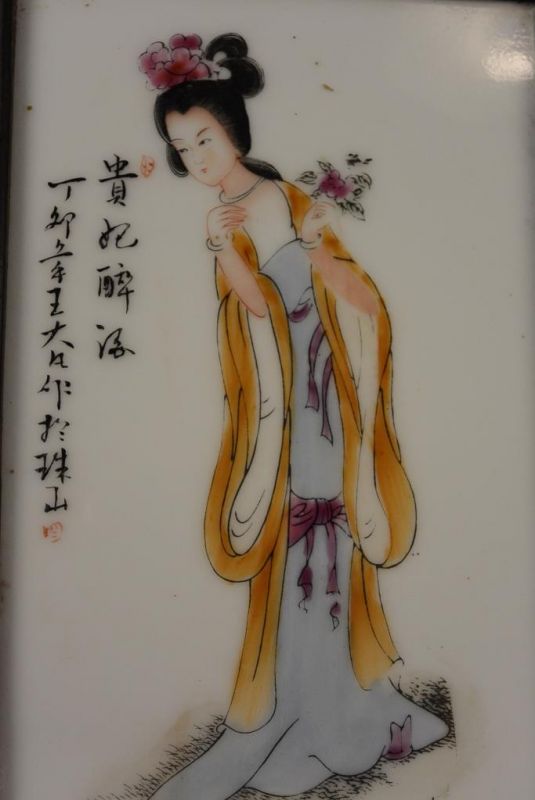 貴妃醉酒
丁卯年王大凡作於珠山